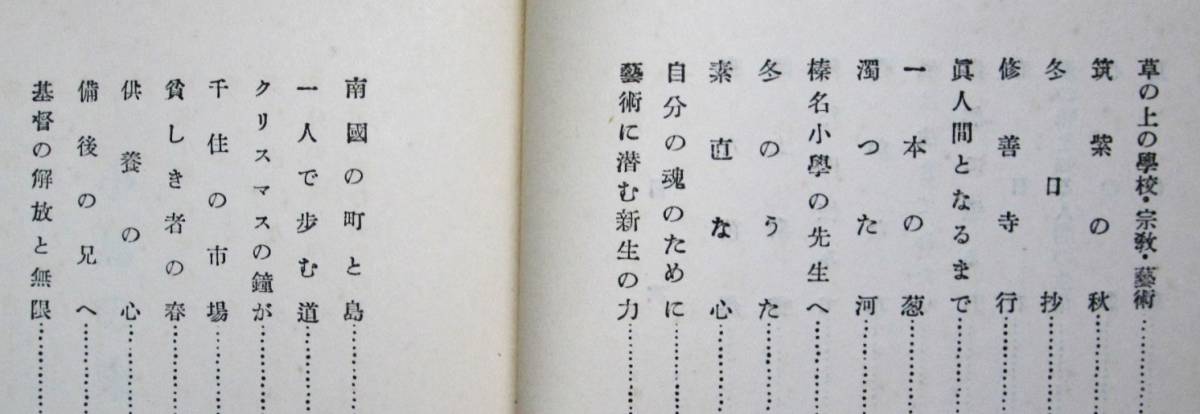 草の上の學校・宗敎・藝術……
筑紫の秋……
冬日抄……
修善寺行……
眞人間となるまで……
一本の葱……
濁つた河……
榛名小學の先生へ……
冬のうた……
素直な心……
自分の魂のために……
藝術に潜む新生の力……
南國の町と島……
一人で歩む道……
クリスマスの鐘が……
千住の市場……
貧しき者の春……
供養の心……
備後の兄へ……
基督の解放と無限……